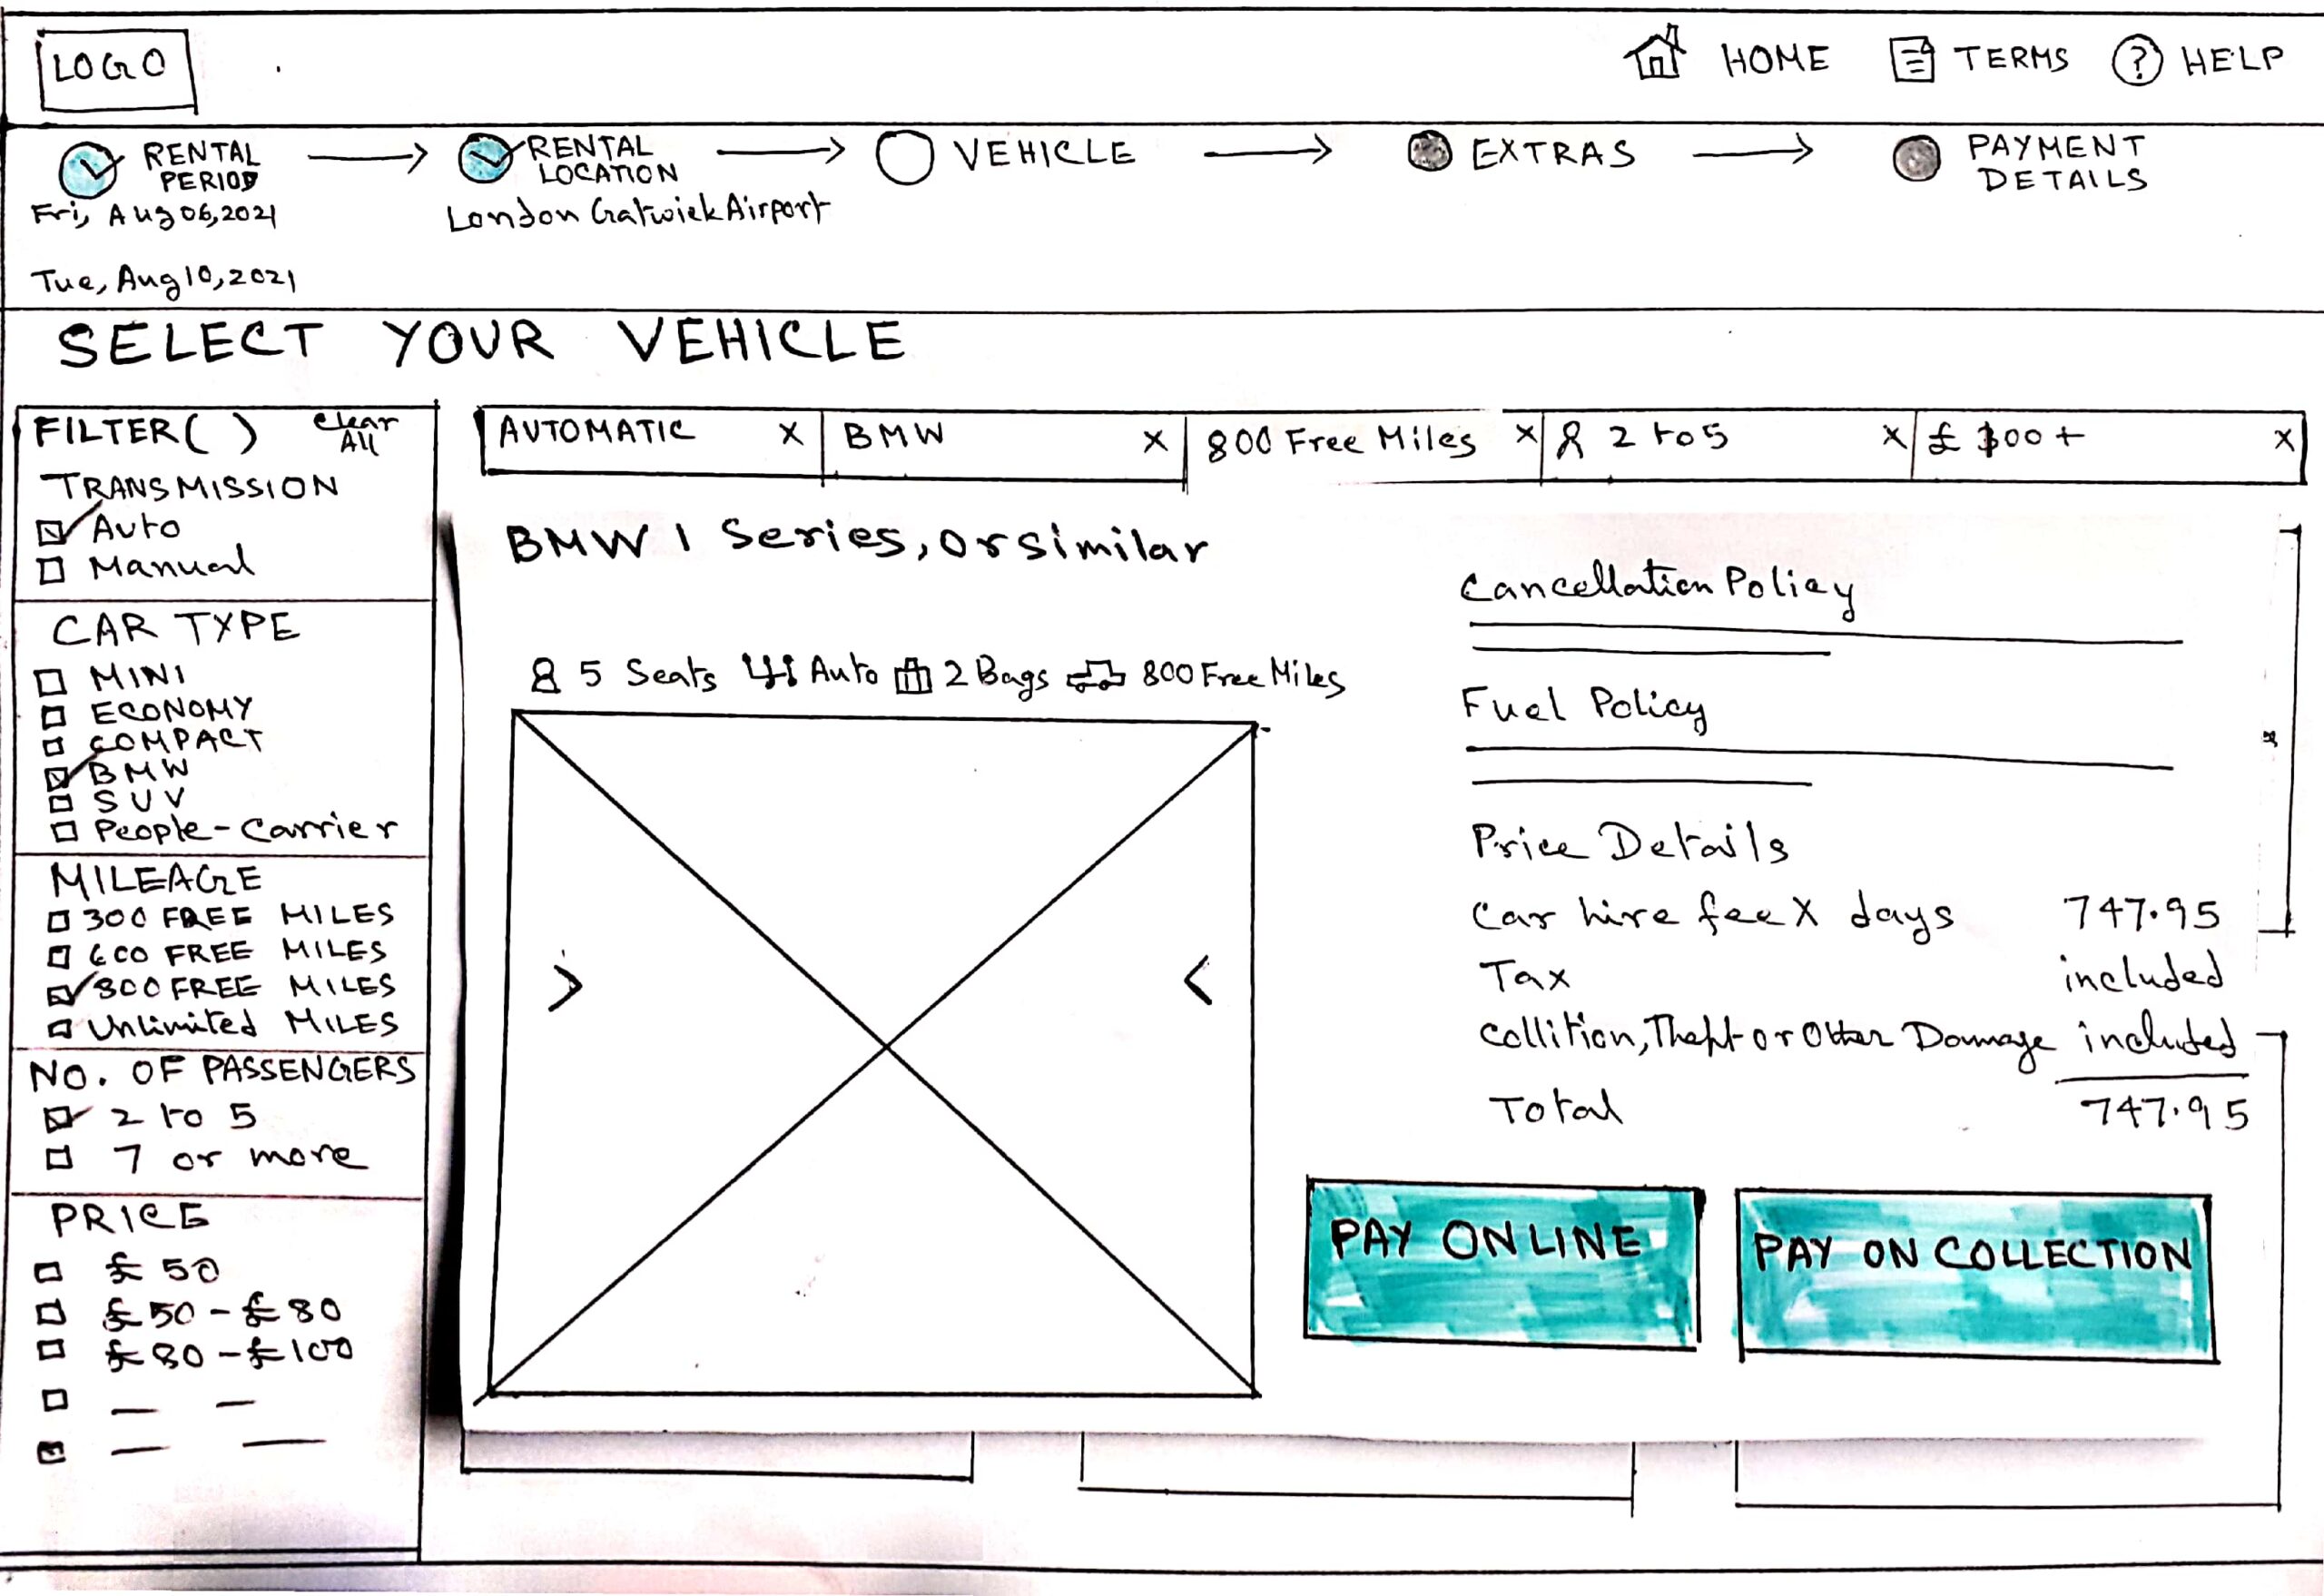 LOGO
HOME TERMS ? HELP
RENTAL PERIOD
Fri, Aug 06, 2021
Tue, Aug 10, 2021
RENTAL LOCATION
London Gatwick Airport
VEHICLE
EXTRAS
PAYMENT DETAILS
SELECT YOUR VEHICLE
FILTER( ) Clear All
TRANSMISSION
Auto
Manual
CAR TYPE
MINI
ECONOMY
COMPACT
BMW
SUV
People-Carrier
MILEAGE
300 FREE MILES
600 FREE MILES
800 FREE MILES
Unlimited MILES
NO. OF PASSENGERS
2 to 5
7 or more
PRICE
£ 50
£50 - £80
£80 - £100
AUTOMATIC X
BMW X
800 Free Miles X
2 to 5 X
£ 100+ X
BMW 1 Series, or similar
5 Seats Auto 2 Bags 800 Free Miles
> <
Cancellation Policy
Fuel Policy
Price Details
Car hire fee X days 747.95
Tax included
Collition, Theft or Other Damage included
Total 747.95
PAY ONLINE
PAY ON COLLECTION